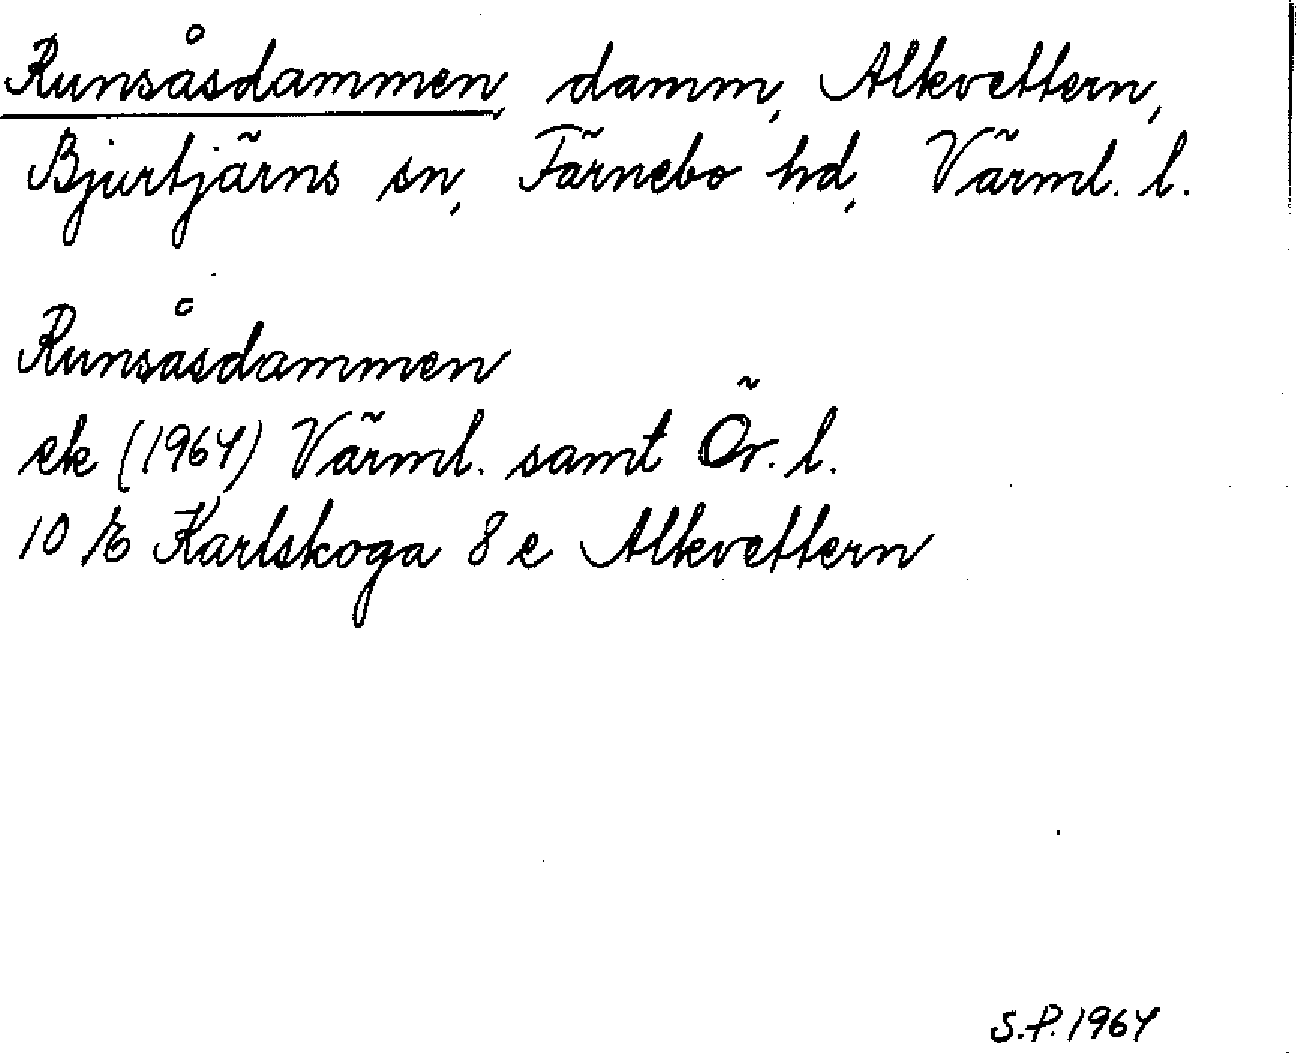 Runsåsdammen, damm, Alkvettern,
Bjurtjärns sn, Färnebo hd, Värml. l.
Runsåsdammen
ek (1964) Värml. samt Ör. l.
10 E Karlskoga 8 e Alkvettern
S.P. 1964